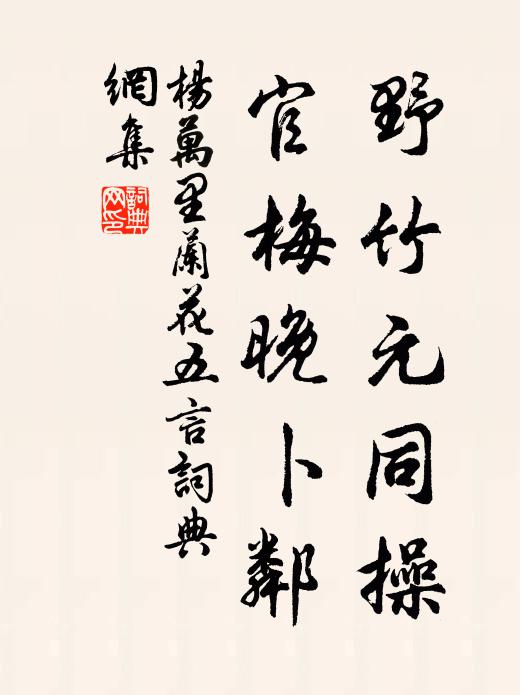 野竹元同操
官梅晚卜鄰
楊萬里蘭花五言詞典
網集
詞典網印